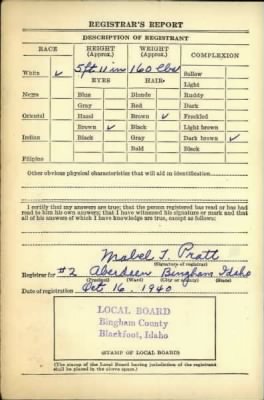 REGISTRAR'S REPORT
DESCRIPTION OF REGISTRANT
RACE HEIGHT (Approx.) WEIGHT (Approx.) COMPLEXION
White ✓ 5 ft 11 in 160 lbs Sallow
EYES HAIR Light
Negro Blue Blonde Ruddy
Gray Red Dark
Oriental Hazel Brown ✓ Freckled
Brown ✓ Black Light brown
Indian Black Gray Dark brown ✓
Bald Black
Filipino
Other obvious physical characteristics that will aid in identification
I certify that my answers are true; that the person registered has read or has had
read to him his own answers; that I have witnessed his signature or mark and that
all of his answers of which I have knowledge are true, except as follows:
Mabel T. Pratt
(Signature of registrar)
Registrar for #2 Aberdeen Bingham Idaho
(Precinct) (Ward) (City or county) (State)
Date of registration Oct 16, 1940
LOCAL BOARD
Bingham County
Blackfoot, Idaho
(STAMP OF LOCAL BOARD)
(The stamp of the Local Board having jurisdiction of the registrant
shall be placed in the above space.)